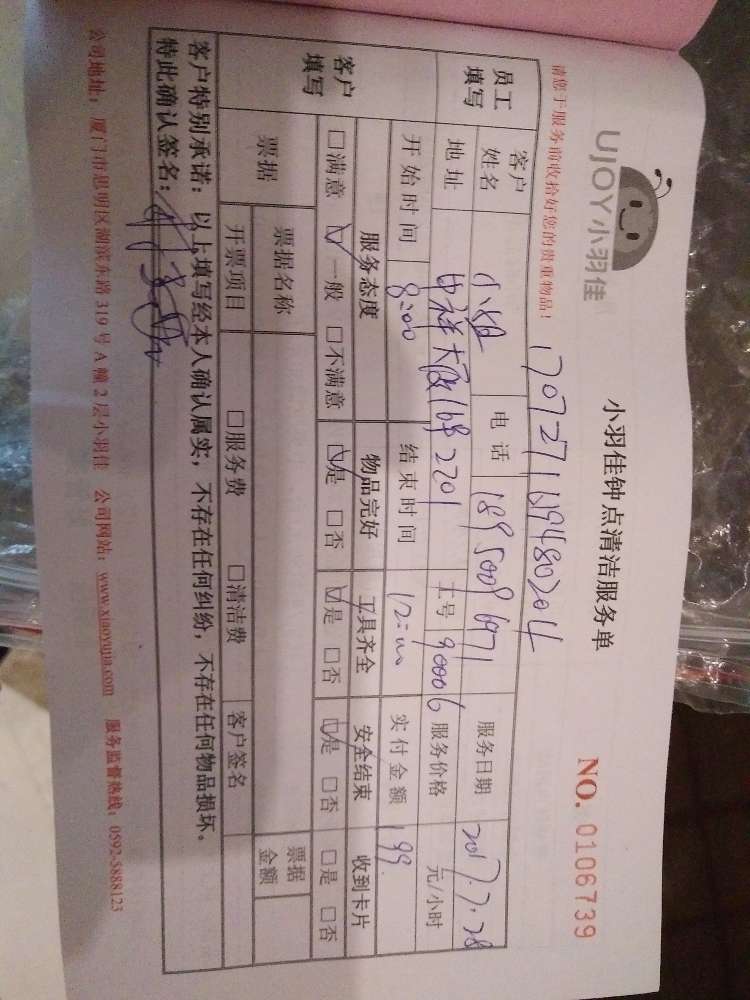 UJOY小羽佳
小羽佳钟点清洁服务单
NO. 0106739
请您于服务前收拾好您的贵重物品!
员工填写 客户姓名 小姐 电话 18950096971 服务日期 2017.7.28
地址 大厦 2201 工号 90006 服务价格 元/小时
开始时间 8:00 结束时间 12:00 实付金额 199
客户填写 服务态度 物品完好 工具齐全 安全结束 收到卡片
□满意 ☑一般 □不满意 ☑是 □否 ☑是 □否 ☑是 □否 □是 □否
票据 票据名称 票据金额
开票项目 □服务费 □清洁费 客户签名
客户特别承诺：以上填写经本人确认属实，不存在任何纠纷，不存在任何物品损坏。
特此确认签名：
公司地址：厦门市思明区湖滨东路 319 号 A 幢 2 层小羽佳 公司网站：www.xiaoyujia.com 服务监督热线：0592-5888123